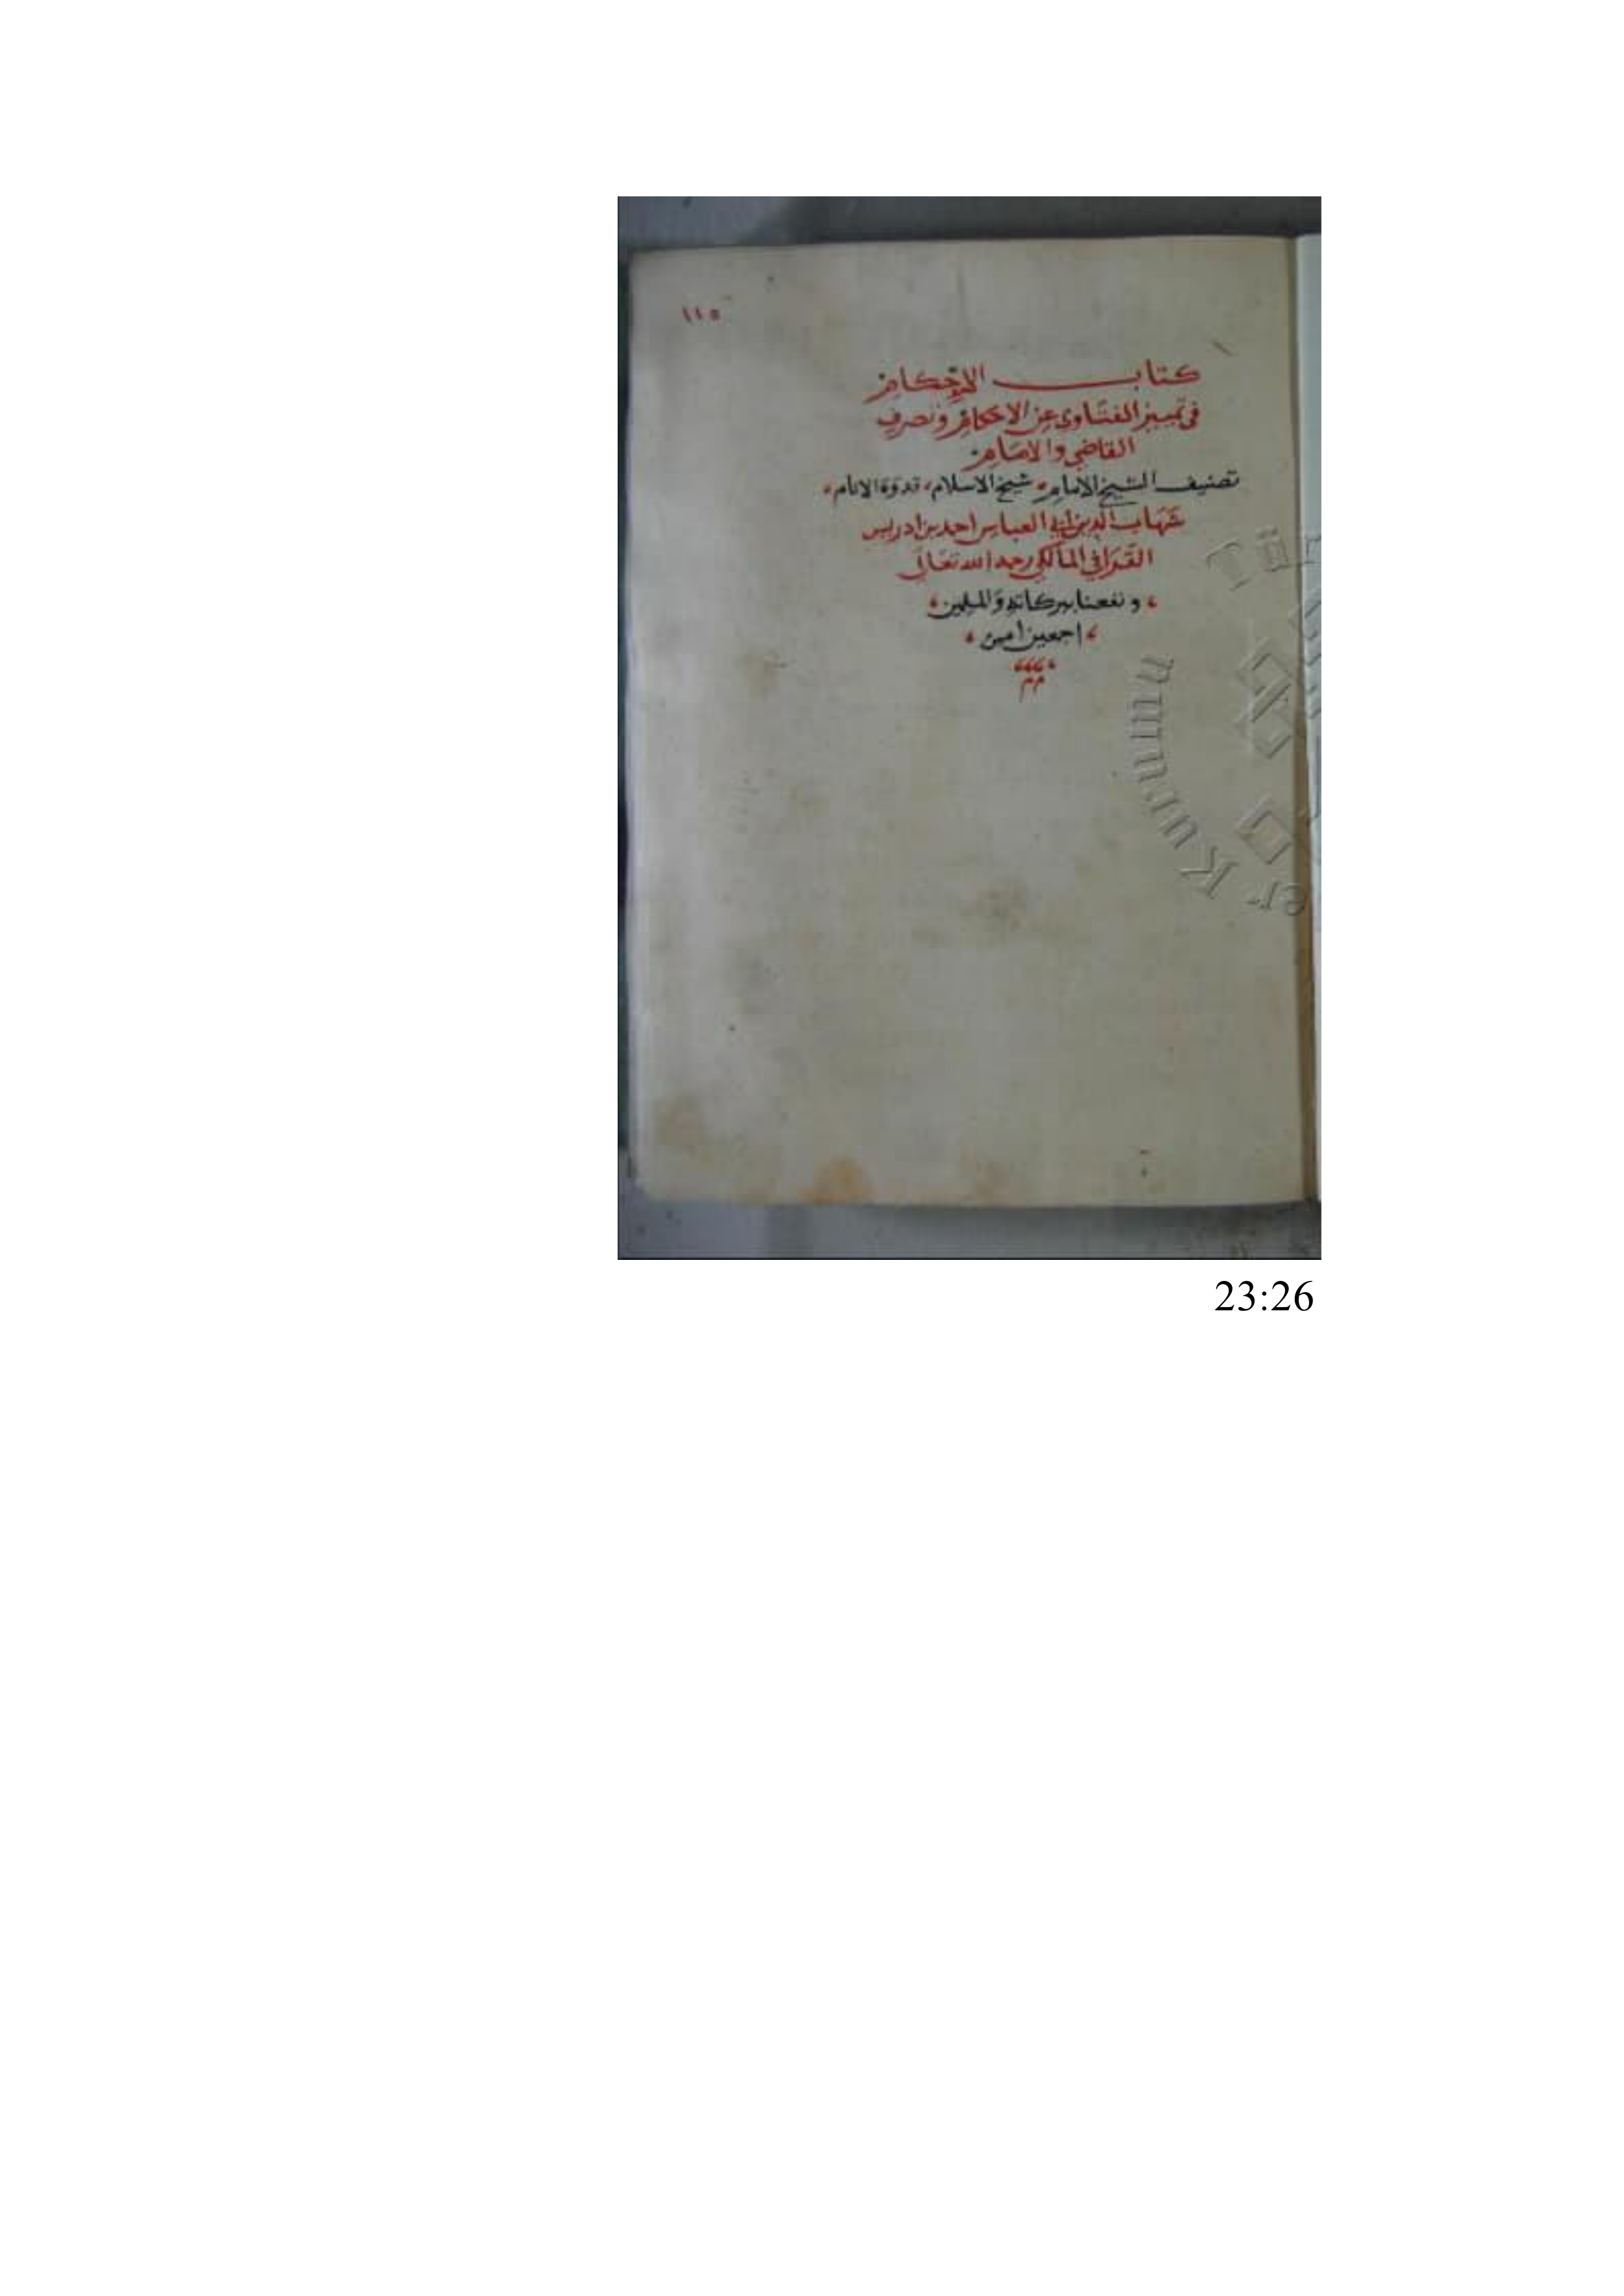 ١١٥
كتاب الاحكام
في تمييز الفتاوى عن الاحكام وتصرف
القاضي والامام
تصنيف الشيخ الامام شيخ الاسلام قدوة الانام
شهاب الدين ابي العباس احمد بن ادريس
القرافي المالكي رحمه الله تعالى
ونفعنا ببركاته والمسلمين
اجمعين امين
Tür
er Kurumu
23:26